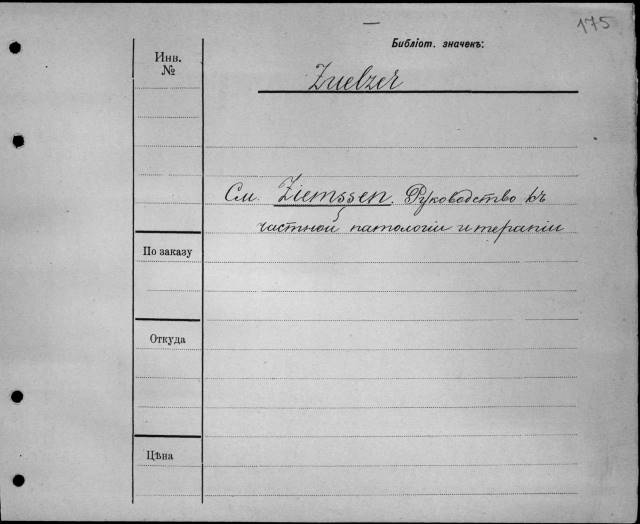 175
Библіот. значекъ:
Инв.
№
Zuelzer
См. Ziemssen. Руководство къ
частной патологіи и терапіи
По заказу
Откуда
Цѣна